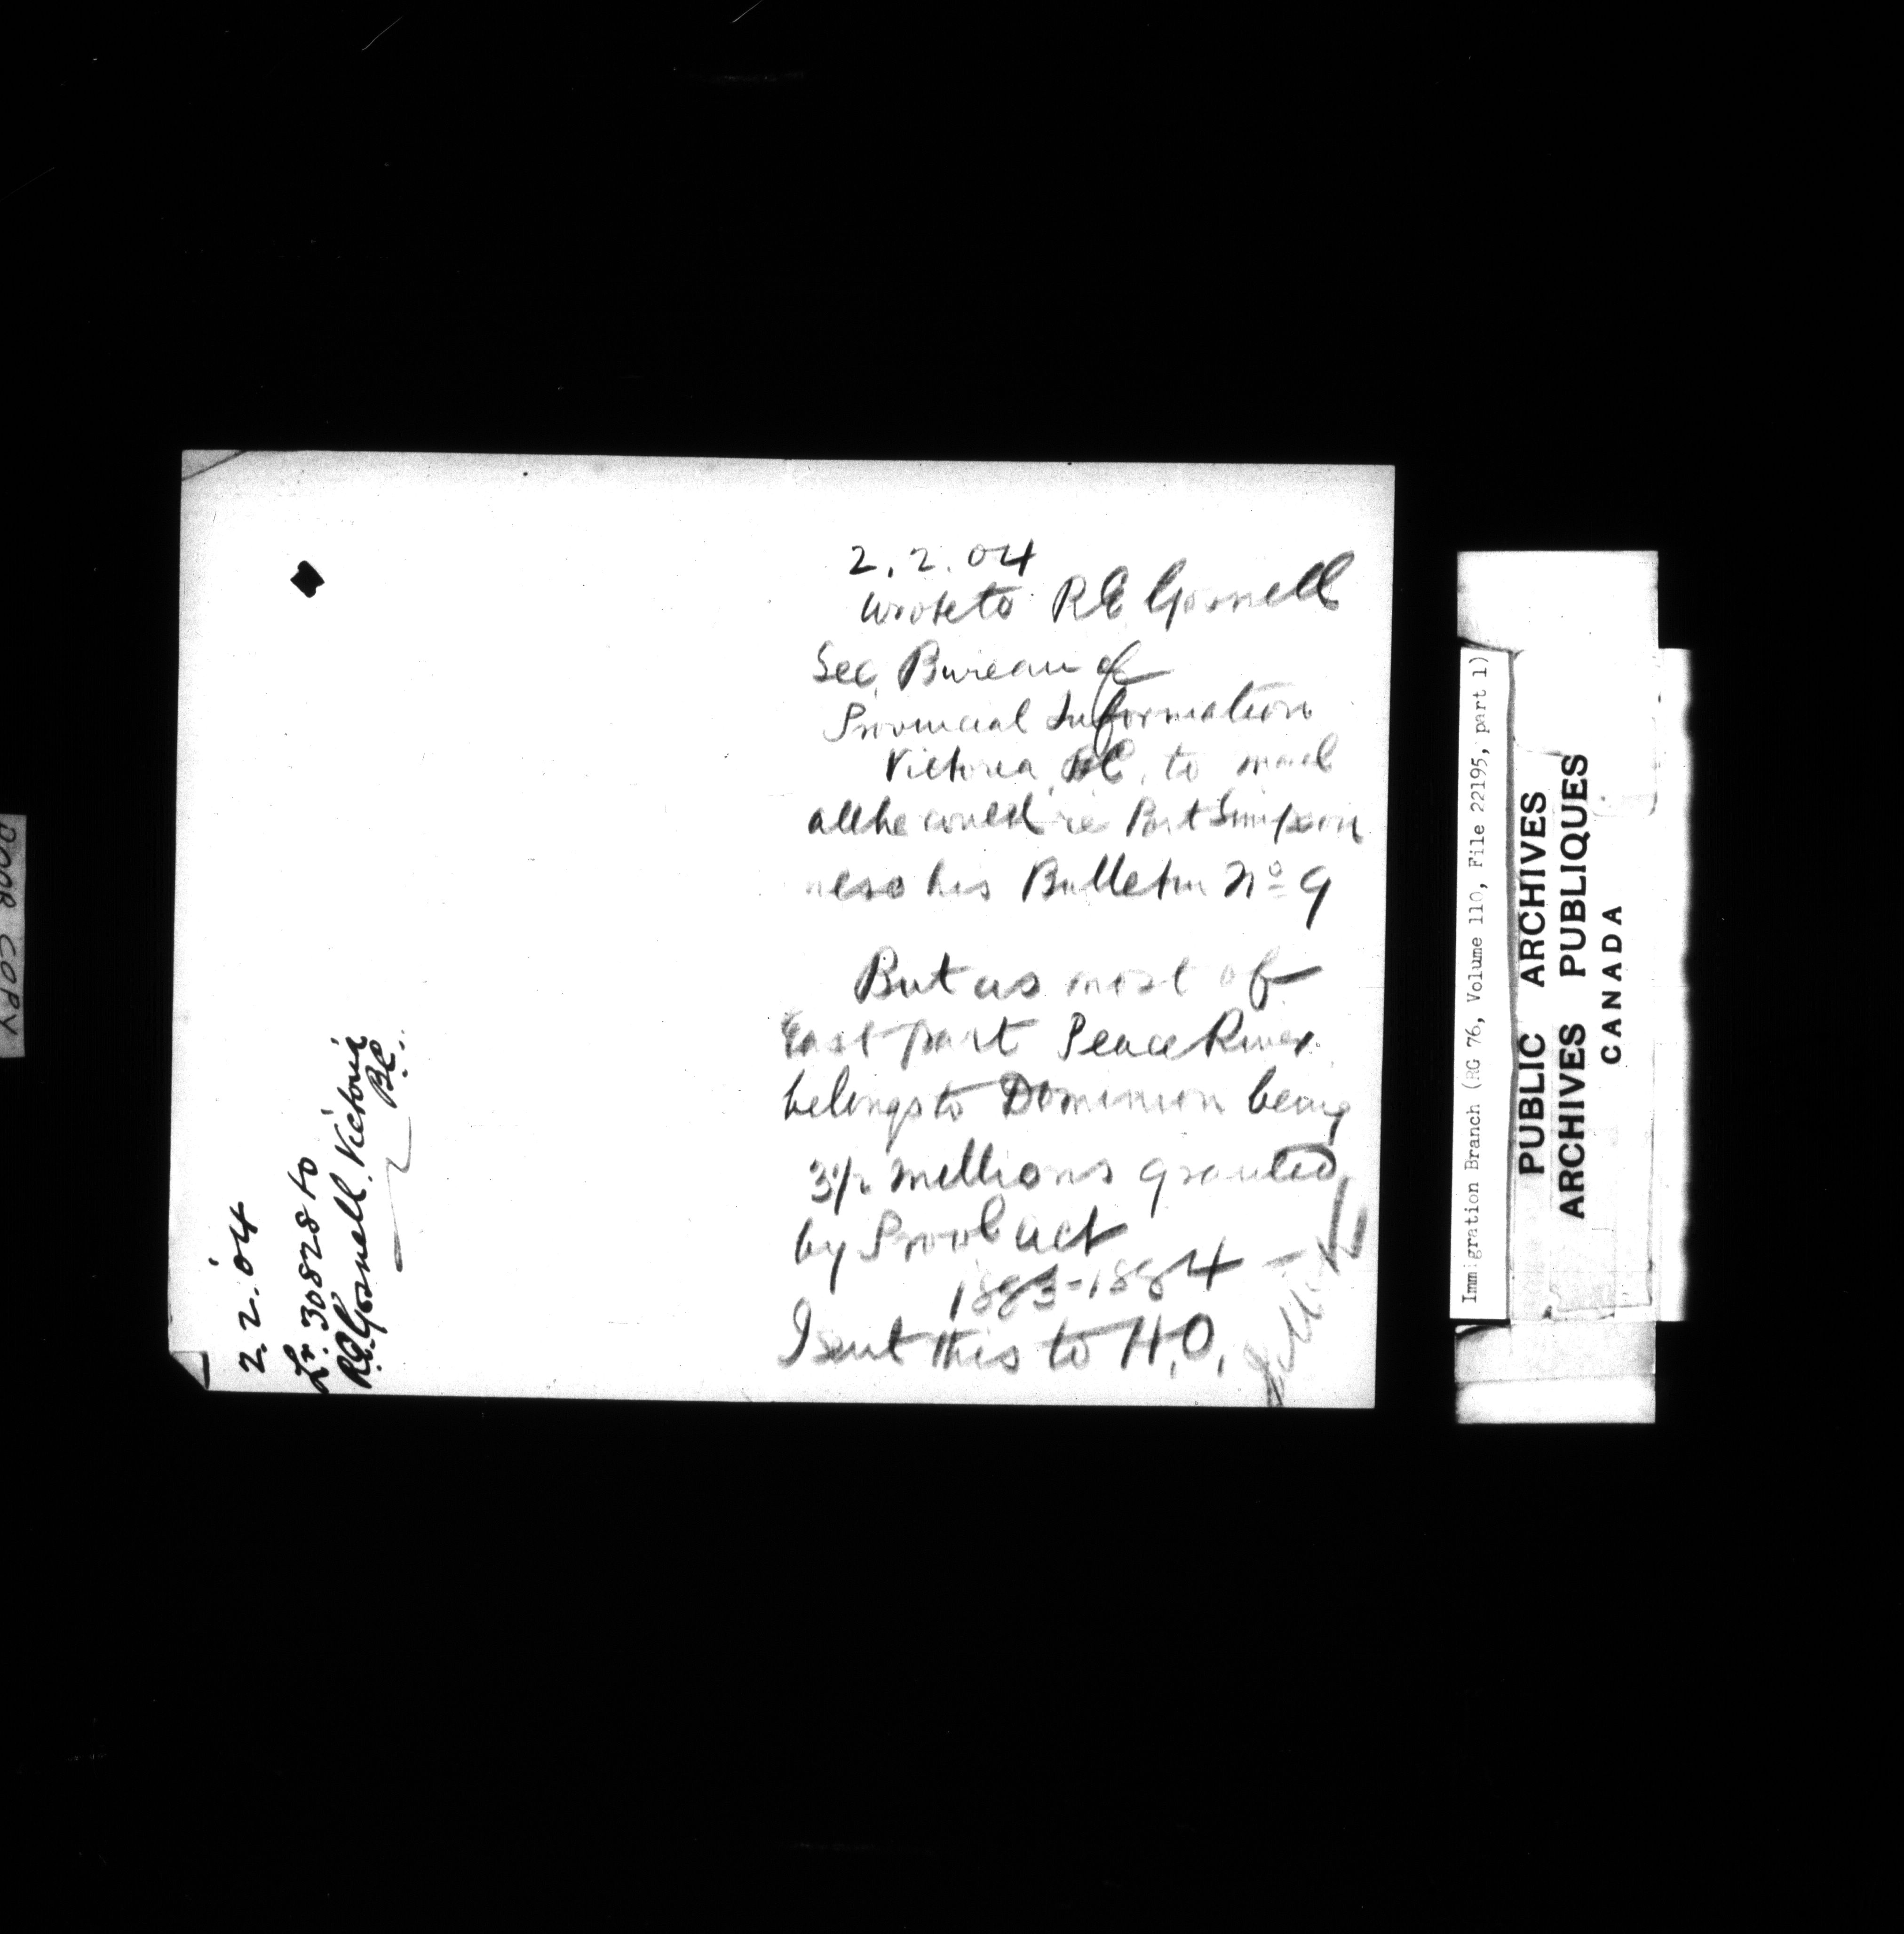 2.2.04
Wrote to R E Gosnell
Sec. Bureau of
Provincial Information
Victoria, BC, to mail
all he could re Port Simpson
also his Bulletin No 9
But as most of
East part Peace River
belongs to Dominion being
3½ millions granted
by Provl act
1883-1884 -
I sent this to H.O.
2.2.'04
Lr. 30828 to
R.E. Gosnell. Victoria
B.C.
Immigration Branch (RG 76, Volume 110, File 22195, part 1)
PUBLIC ARCHIVES
ARCHIVES PUBLIQUES
CANADA
POOR COPY